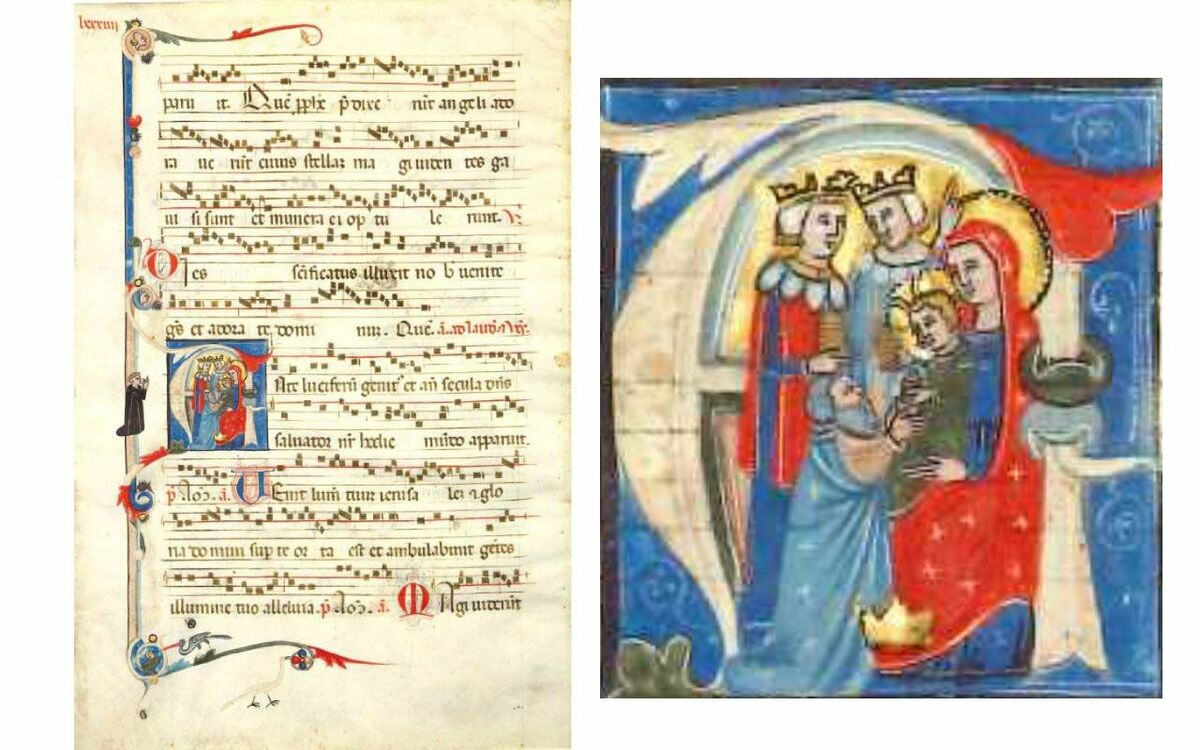 lxxxiiij
paruit. Quē pplx p̄dixe rūt angeli ado
ra ue rūt cuius stellaz ma gi uiden tes ga
ui si sunt et munera ei op tu le runt. ℟
Dies scīficatus illuxit no b uenite
gēs et adora te domi num. Quē.
Ante luciferū genit᷒ et añ secula dn̄s
saluator nr̄ hodie mūdo apparuit.
a. Uenit lumē tuum ierusa lez ⁊ glo
ria domini sup te or ta est et ambulabunt gētes
in lumine tuo alleluia. a. Magi uiderūt